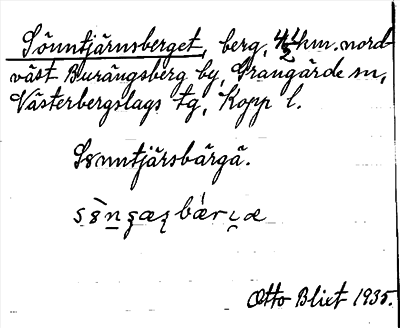 Sönntjärnsberget, berg, 4½ km. nord-
väst Burängsberg by, Grangärde sn,
Västerbergslags tg, Kopp l.
S8nntjärsbärgä.
Otto Blixt 1935.